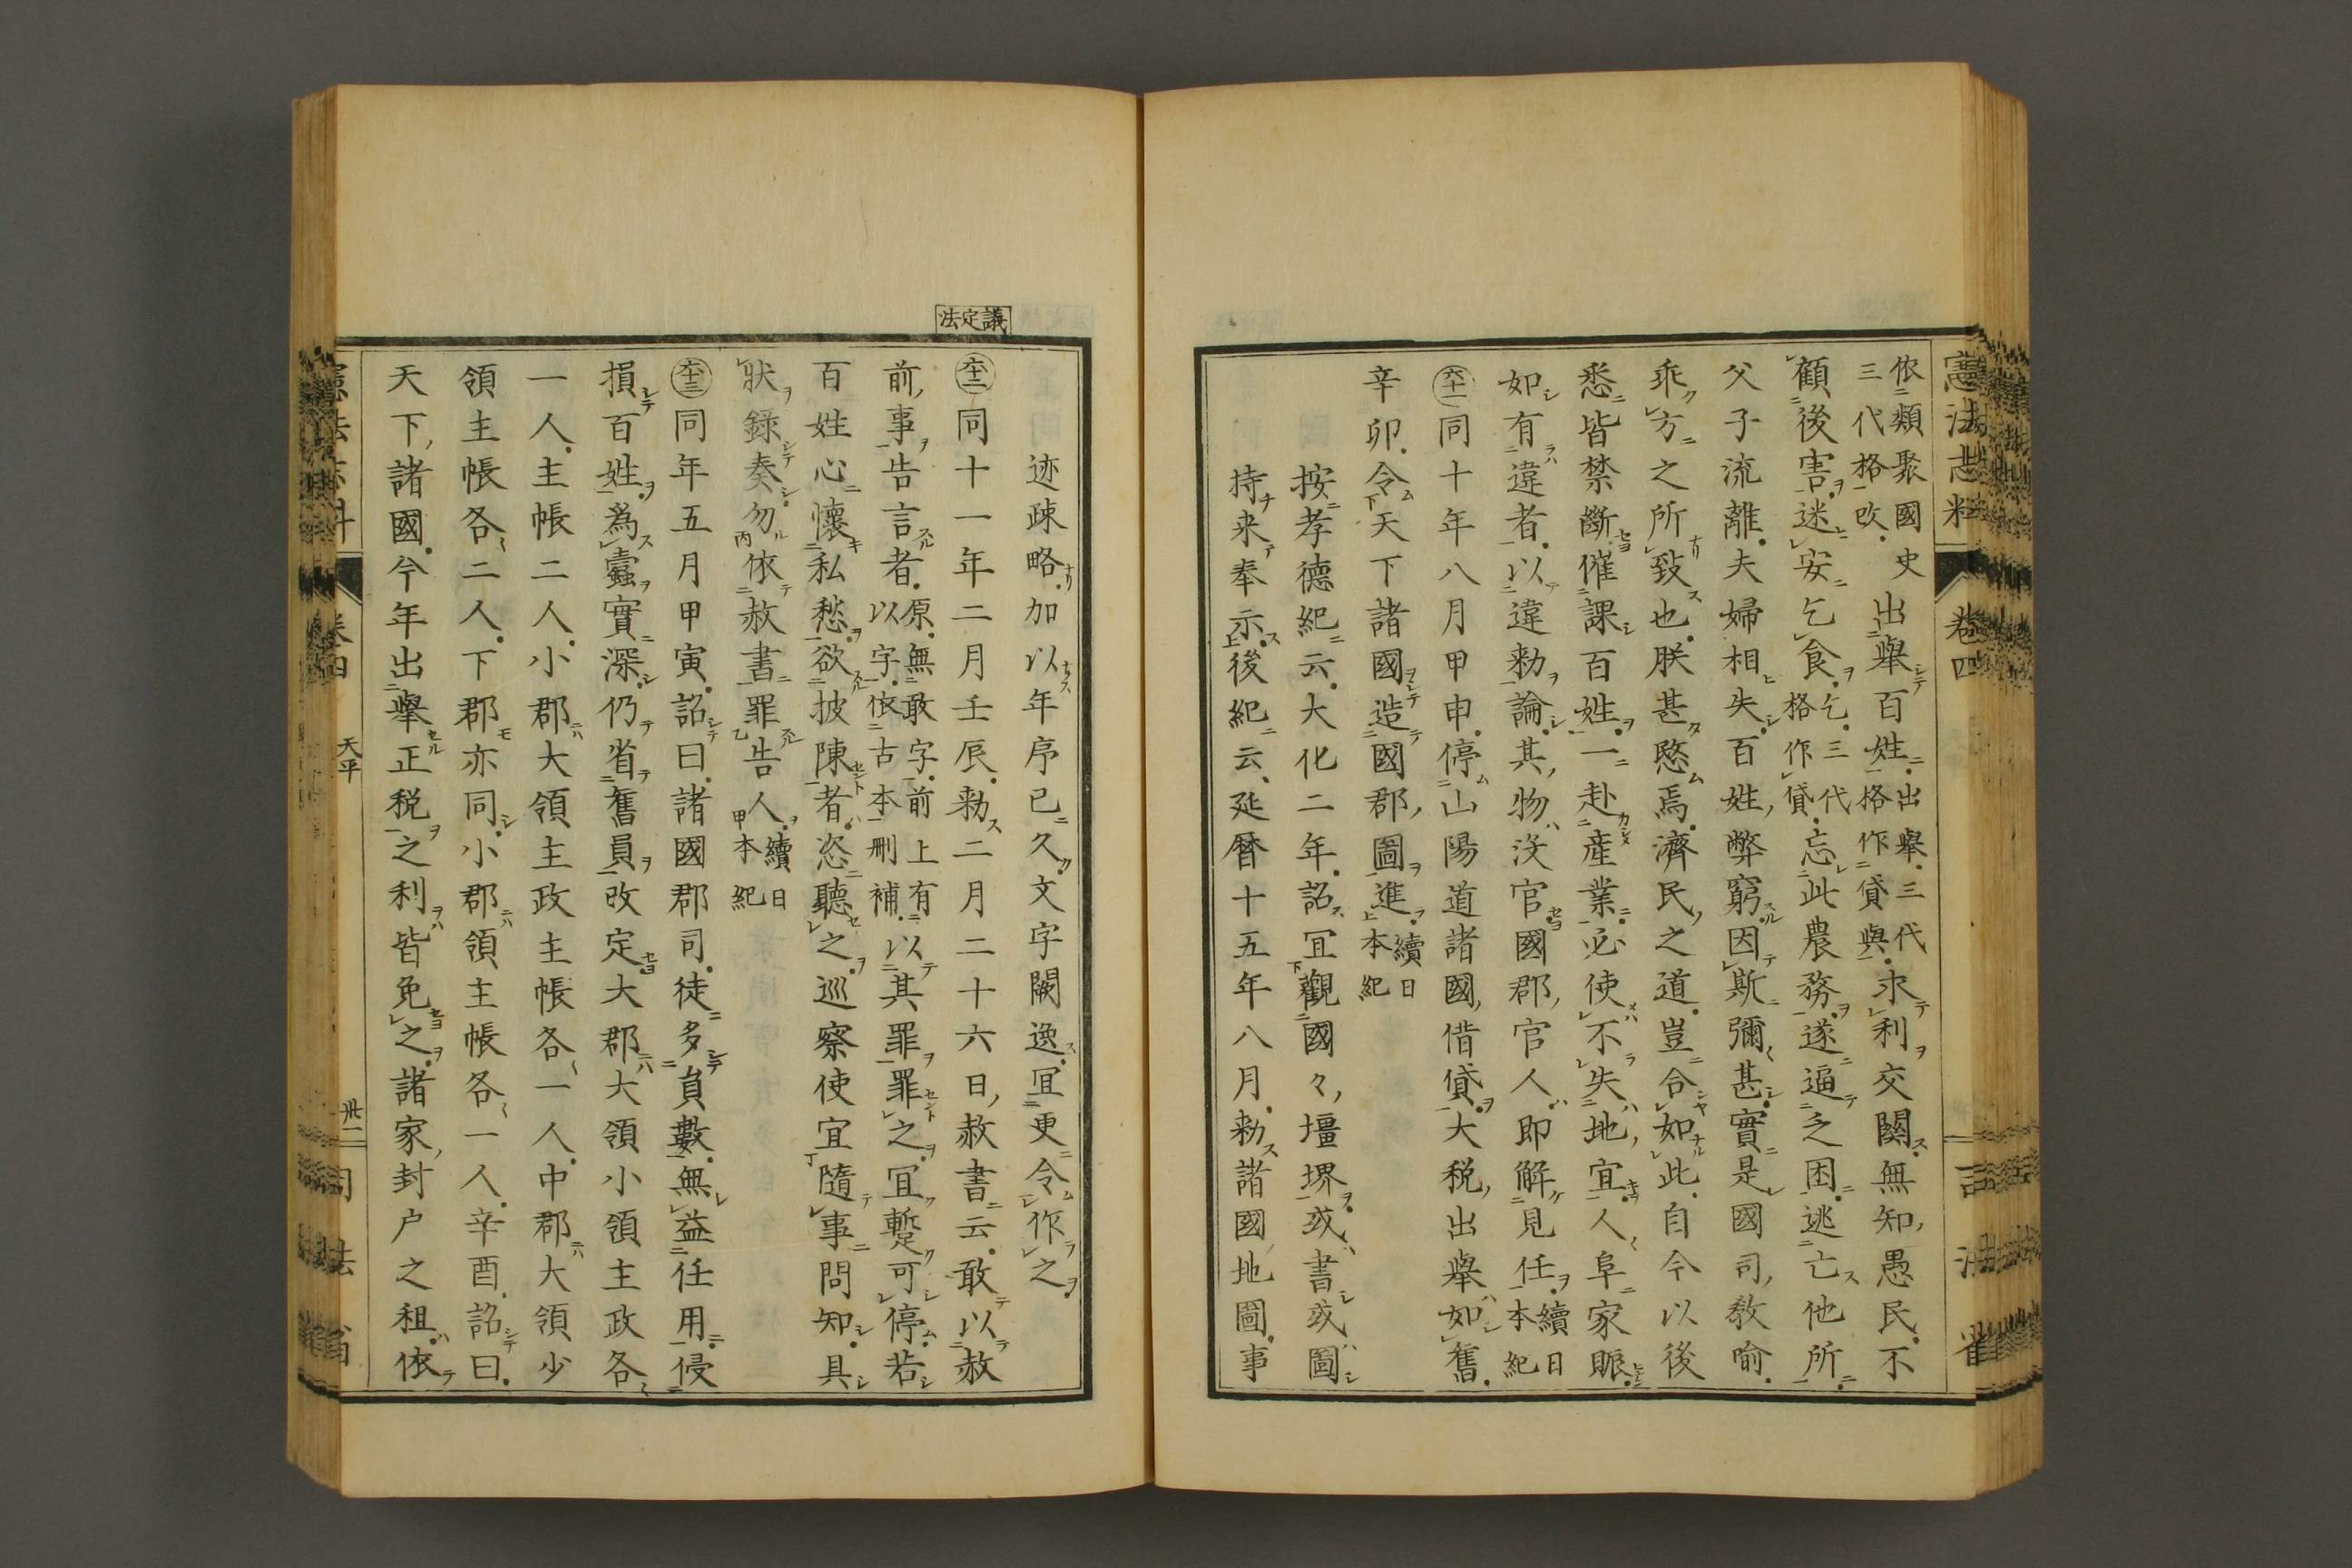 憲法志料 卷四 司法省
依類聚國史三代格攺出擧百姓出擧三代格作貸與求利交關無知愚民不
顧後害迷安乞食乞三代格作貸忘此農務遂逼乏困逃亡他所
父子流離夫婦相失百姓弊窮因斯彌甚實是國司敎喩
乖方之所致也朕甚愍焉濟民之道豈合如此自今以後
悉皆禁斷催課百姓一赴產業必使不失地宜人阜家賑
如有違者以違勅論其物沒官國郡官人即解見任續日本紀
六十一同十年八月甲申停山陽道諸國借貸大税出擧如舊
辛卯令天下諸國造國郡圖進續日本紀
按孝德紀云大化二年詔宜觀國々壃堺或書或圖
持来奉示後紀云延曆十五年八月勅諸國地圖事
迹疎略加以年序已久文字闕逸宜更令作之
議定法
六十二同十一年二月壬辰勅二月二十六日赦書云敢以赦
前事告言者原無敢字前上有以字依古本刪補以其罪罪之宜蹔可停若
百姓心懷私愁欲披陳者恣聽之巡察使宜隨事問知具
狀錄奏勿依赦書罪告人續日本紀
六十三同年五月甲寅詔曰諸國郡司徒多員數無益任用侵
損百姓爲蠹實深仍省舊員改定大郡大領小領主政各
一人主帳二人小郡大領主政主帳各一人中郡大領少
領主帳各二人下郡亦同小郡領主帳各一人辛酉詔曰
天下諸國今年出擧正税之利皆免之諸家封户之租依
憲法志料 卷四 天平 卅二 司法省